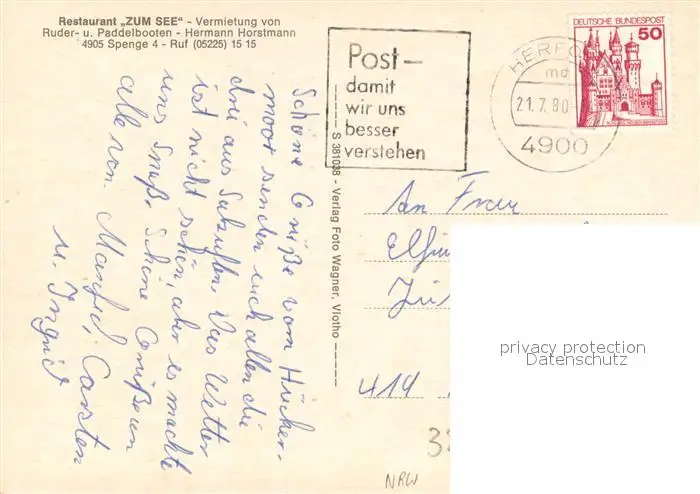 Restaurant „ZUM SEE" - Vermietung von
Ruder- u. Paddelbooten - Hermann Horstmann
4905 Spenge 4 - Ruf (05225) 15 15
Post-
damit
wir uns
besser
verstehen
HERFO
md
21.7.80
4900
DEUTSCHE BUNDESPOST
50
Schöne Grüße vom Hücker-
moor senden euch allen die
drei aus Salzuflen. Das Wetter
ist nicht schön, aber es machte
uns Spaß. Schöne Grüße an
alle von Manfred, Carsten
u. Ingrid
S 381038 - Verlag Foto Wagner, Vlotho
An Frau
414
privacy protection
Datenschutz
NRW